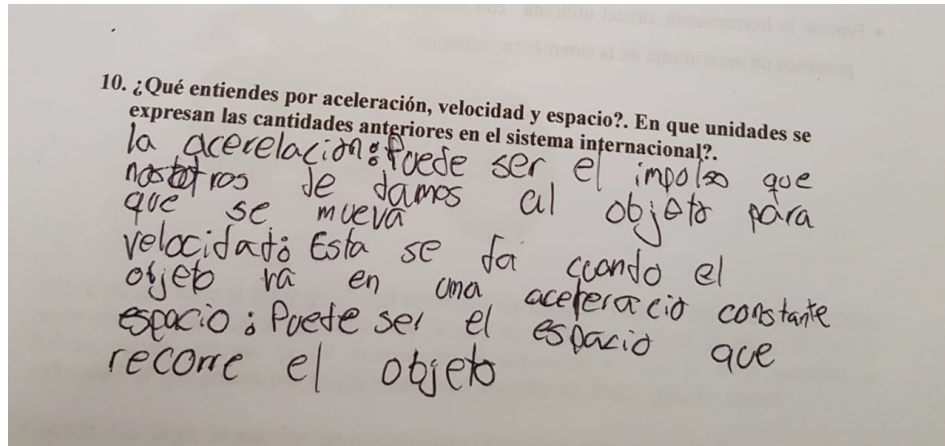 10. ¿Qué entiendes por aceleración, velocidad y espacio?. En que unidades se
expresan las cantidades anteriores en el sistema internacional?.
la acerelacion: Puede ser el impulso que
nosotros le damos al objeto para
que se mueva
velocidad: Esta se da cuando el
objeto va en una aceleracio constante
espacio: Puede ser el espacio que
recorre el objeto